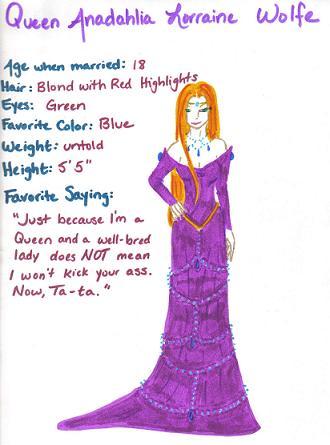 Queen Anadahlia Lorraine Wolfe
Age when married: 18
Hair: Blond with Red Highlights
Eyes: Green
Favorite Color: Blue
Weight: untold
Height: 5'5"
Favorite Saying:
"Just because I'm a
Queen and a well-bred
lady does NOT mean
I won't kick your ass.
Now, Ta-ta."